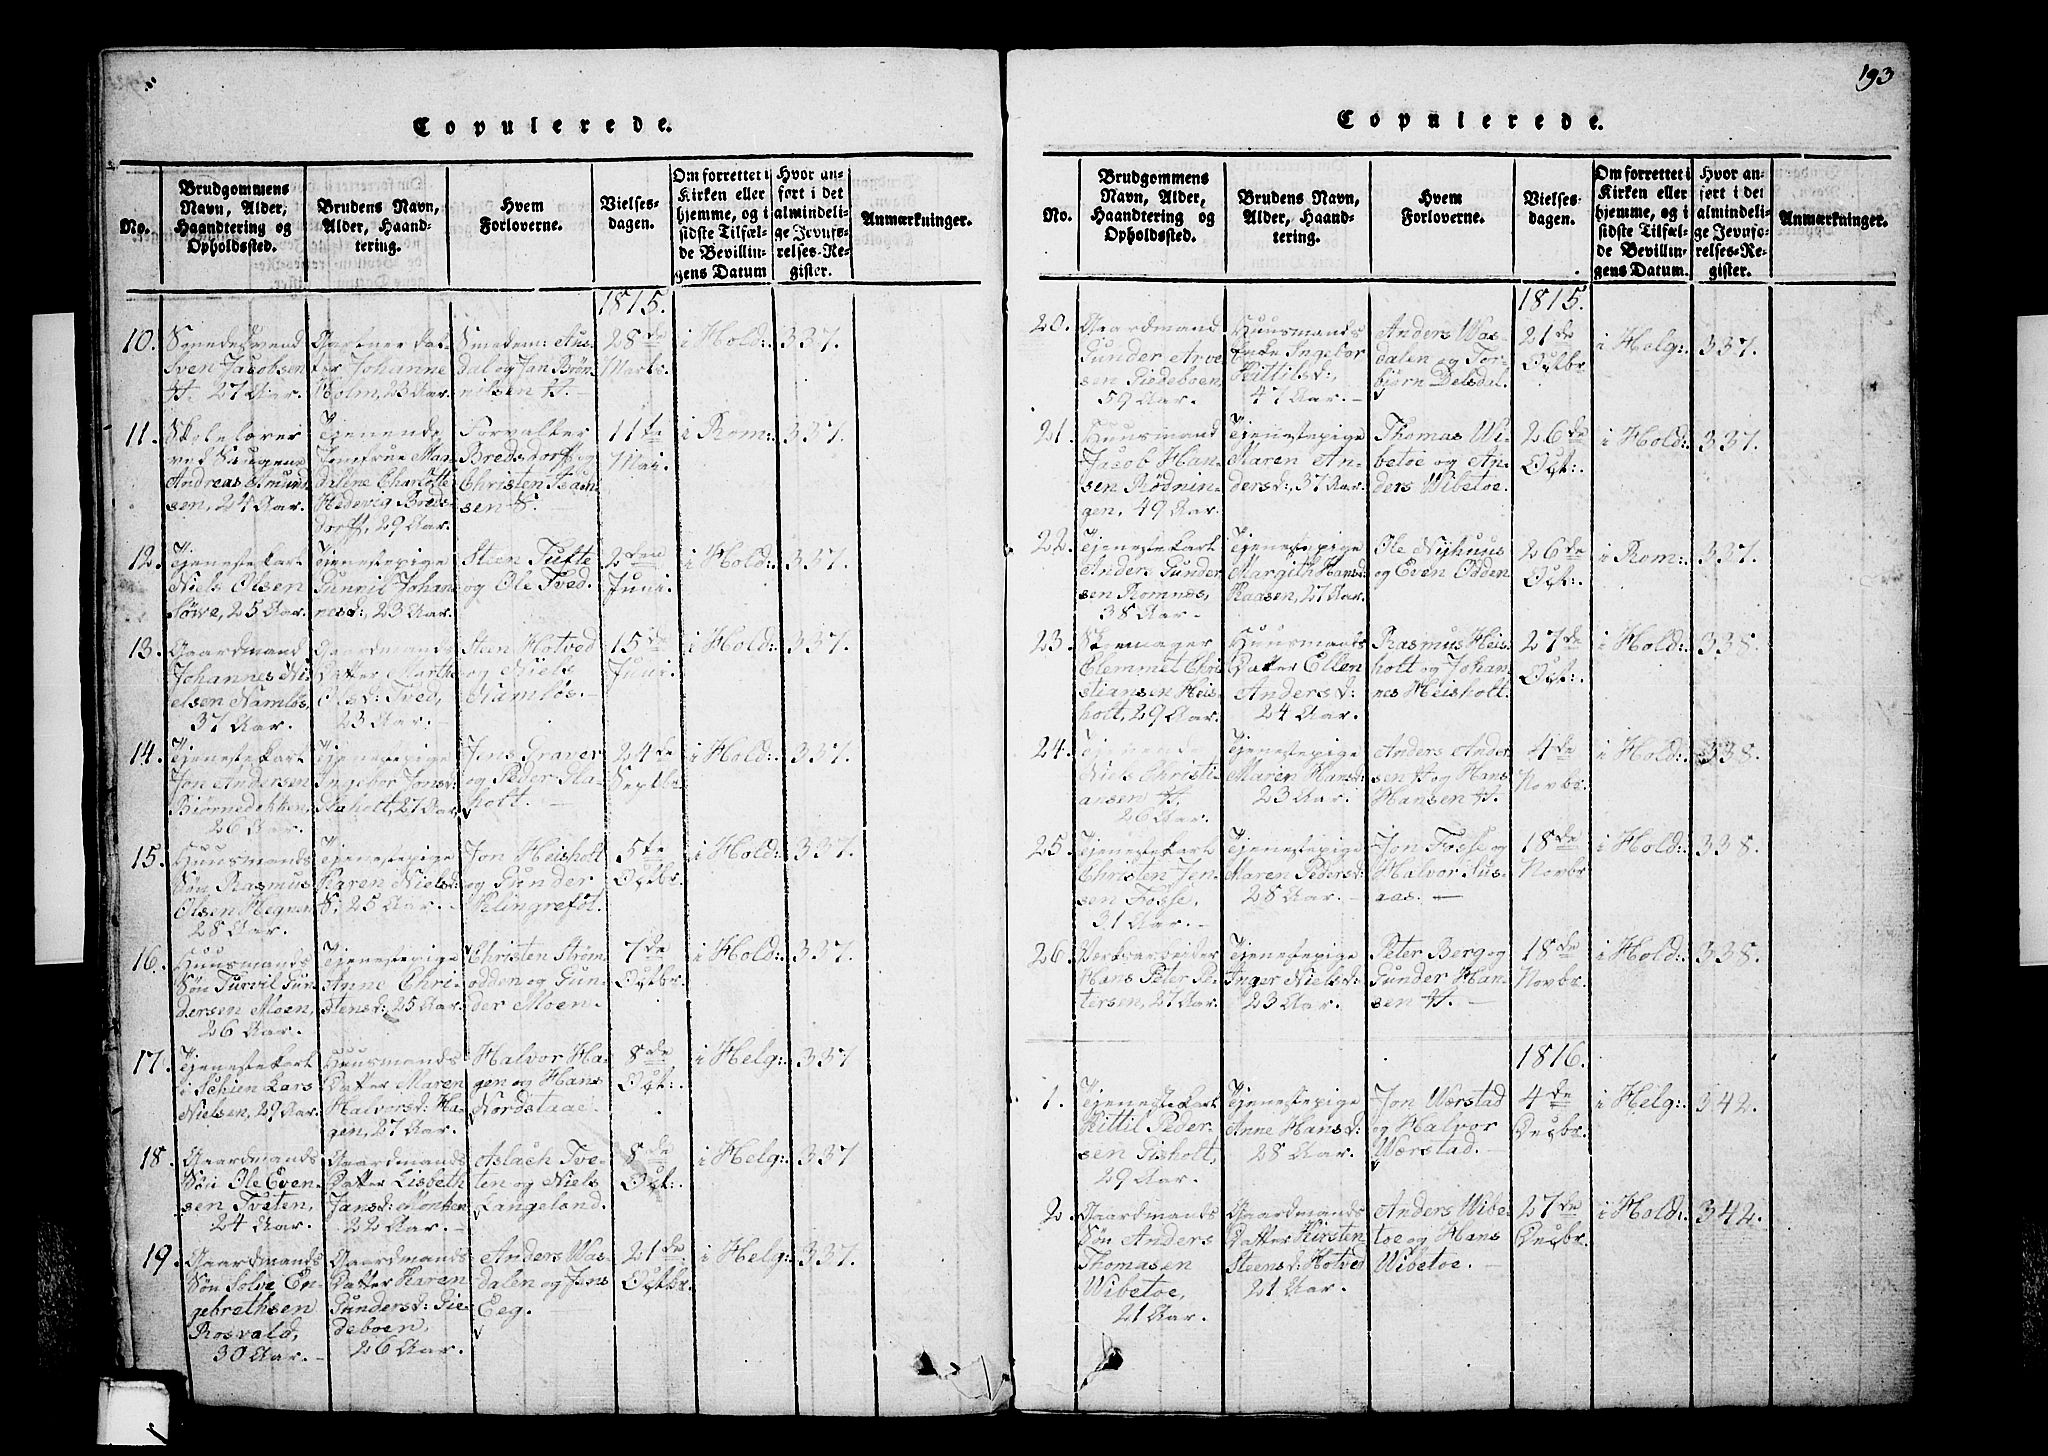 193
Copulerede.
No.
Brudgommens
Navn, Alder,
Haandtering og
Opholdssted.
Brudens Navn,
Alder, Haand-
tering.
Hvem
Forloverne.
Vielses-
dagen.
Om forrettet i
Kirken eller
hjemme, og i
sidste Tilfæl-
de Bevillin-
gens Datum
Hvor an-
ført i det
almindeli-
ge Jevnfø-
relses-Re-
gister.
Anmærkninger.
1815.
10.
Smedesvend
Sven Jacobsen
27 Aar.
Gartner Dat-
ter Johanne
Holm, 23 Aar.
Smedem:
dal og Jan Brön-
nilsen
28de
Marts.
i Hold:
337.
11.
Skolelærer
ved Saugene
Andreas Amund-
sen, 24 Aar.
Tjenende
Jomfrue Mar-
Charlotte
Hedevig Breds-
dorff, 29 Aar.
Forvalter
Bredsdorff og
Christen
sen
11te
Mai.
i Rom:
337.
12.
Tjenestekarl
Niels Olsen
Söve, 25 Aar.
Tjenestepige
Gunnil Johan-
nesd:, 23 Aar.
Steen Tufte
og Ole Tved.
2den
Juni.
i Hold:
337.
13.
Gaardmand
Johannes Ni-
elsen Namlös,
37 Aar.
Gaardmands
Datter Marthe
Olsd: Tved,
23 Aar.
Steen Hotved
og Niels
Namlös.
15de
Juni.
i Hold:
337.
14.
Tjenestekarl
Jon Andersen
Biörnedokken,
26 Aar.
Tjenestepige
Ingebor Jonsd:
27 Aar.
Jens Graver
og Peder Aa-
holt.
24de
Septbr.
i Hold:
337.
15.
Huusmands
Sön Rasmus
Olsen Hegnen
28 Aar.
Tjenestepige
Karen Nielsd:
25 Aar.
Jon Heisholt
og Gunder
Vælingreföt.
5te
Octbr.
i Hold:
337.
16.
Huusmands
Sön Turvil Gun-
dersen Moen,
26 Aar.
Tjenestepige
Anne Chri-
stensd: 25 Aar.
Christen Ström-
odden og Gun-
der Moen.
7de
Octbr.
i Hold:
337.
17.
Tjenestekarl
i Schien Lars
Nielsen, 29 Aar.
Huusmands
Datter Maren
Halvorsd: Ha-
gen, 27 Aar.
Halvor Ha-
gen og Hans
Nordstaae.
8de
Oct:
i Helg:
337
18.
Gaardmands
Sön Ole Even-
sen Tveten,
24 Aar.
Gaardmands
Datter Lisbeth
Jansd: Monken
22 Aar.
Aslach Tve-
ten og Niels
Langeland.
8de
Oct:
i Helg:
337
19.
Gaardmands
Sön Solve En-
gebrethsen
Rosvald,
30 Aar.
Gaardmands
Datter Karen
Gundersd: Gie-
deboen,
26 Aar.
Anders Vas-
dalen og Jens
Eeg.
21de
Octbr.
i Helg:
337.
Copulerede.
No.
Brudgommens
Navn, Alder,
Haandtering og
Opholdssted.
Brudens Navn,
Alder, Haand-
tering.
Hvem
Forloverne.
Vielses-
dagen.
Om forrettet i
Kirken eller
hjemme, og i
sidste Tilfæl-
de Bevillin-
gens Datum.
Hvor an-
ført i det
almindeli-
ge Jevnfø-
relses-Re-
gister.
Anmærkninger.
1815.
20.
Gaardmand
Gunder Arve-
sen Giedeboen,
59 Aar.
Huusmands
Enke Ingebor
Kittilsd:,
47 Aar.
Anders Vas-
dalen og Tor-
björn Delsdal.
21de
Octbr.
i Helg:
337.
21.
Huusmand
Jacob Han-
sen Rödnin-
gen, 49 Aar.
Tjenestepige
Maren An-
dersd:, 37 Aar.
Thomas Wi-
betoe og An-
ders Wibetoe.
26de
Oct:
i Hold:
337.
22.
Tjenestekarl
Anders Gunder-
sen Romnes,
38 Aar
Tjenestepige
Margith Hansd:
Raasen, 27 Aar.
Ole Nyhuus
og Even Odden
26de
Oct:
i Rom:
337.
23.
Skomager
Clemmet Chri-
stiansen Heis-
holt, 29 Aar.
Huusmands
Datter Ellen
Andersd:
24 Aar.
Rasmus Heis-
holt og Johan-
nes Heisholt.
27de
Oct:
i Hold:
338.
24.
Tjenende
Niels Christi-
ansen
26 Aar.
Tjenestepige
Maren Hansd:
23 Aar.
Anders Ander-
sen og Hans
Hansen
4de
Novbr.
i Hold:
338.
25.
Tjenestekarl
Christen Jen-
sen Fosse,
31 Aar.
Tjenestepige
Maren Pedersd:
28 Aar.
Jon Fosse og
Halvor Sus-
aas.
18de
Novbr
i Hold:
338.
26.
Værksarbeider
Hans Peter Pe-
tersen, 27 Aar.
Tjenestepige
Inger Nielsd:
23 Aar.
Peter Berg og
Gunder Han-
sen
18de
Novbr.
i Hold:
338.
1816.
1.
Tjenestekarl
Kittil Peder-
sen Gisholt,
29 Aar.
Tjenestepige
Anne Hansd:
28 Aar.
Jon Wærstad
og Halvor
Wærstad.
4de
Decbr.
i Helg:
342.
2.
Gaardmands
Sön Anders
Thomasen
Wibetoe,
21 Aar.
Gaardmands
Datter Kirsten
Steensd: Hotved
21 Aar.
Anders Wibe-
toe og Hans
Wibetoe.
27de
Decbr.
i Hold:
342.